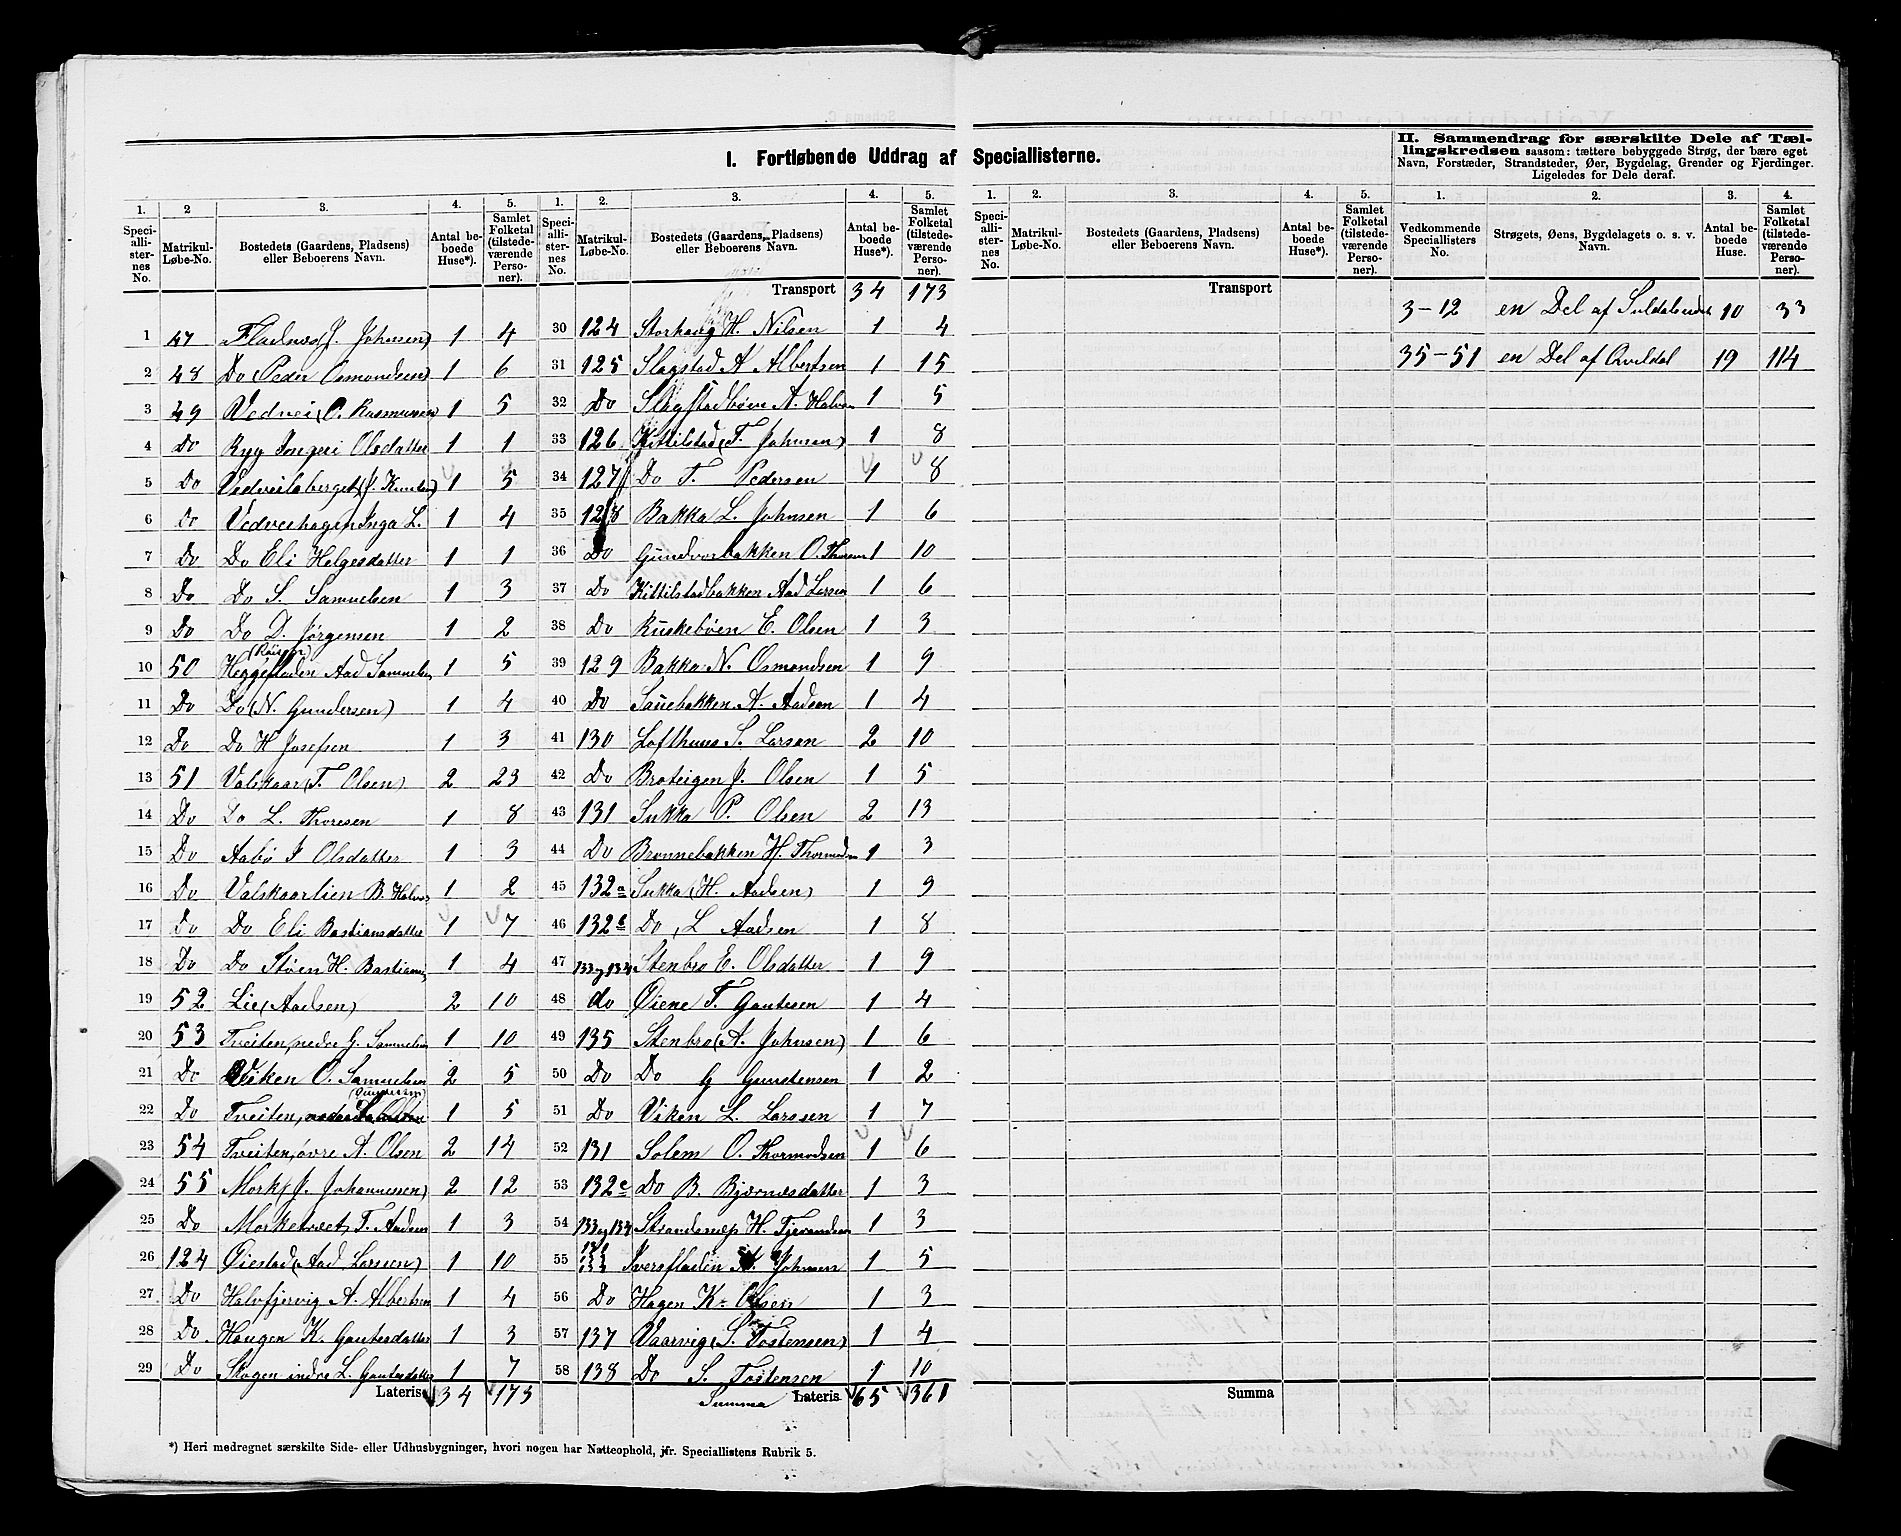 I. Fortløbende Uddrag af Speciallisterne.
II. Sammendrag for særskilte Dele af Tæl-
lingskredsen saasom: tættere bebyggede Strøg, der bære eget
Navn, Forstæder, Strandsteder, Øer, Bygdelag, Grender og Fjerdinger.
Ligeledes for Dele deraf.
1. 2 3. 4. 5. 1. 2. 3. 4. 5. 1. 2. 3. 4. 5. 1. 2. 3. 4.
Speciallisternes No. Matrikul-Løbe-No. Bostedets (Gaardens, Pladsens) eller Beboerens Navn. Antal beboede Huse*). Samlet Folketal (tilstedeværende Personer).
Speciallisternes No. Matrikul-Løbe-No. Bostedets (Gaardens, Pladsens) eller Beboerens Navn. Antal beboede Huse*). Samlet Folketal (tilstedeværende Personer).
Speciallisternes No. Matrikul-Løbe-No. Bostedets (Gaardens, Pladsens) eller Beboerens Navn. Antal beboede Huse*). Samlet Folketal (tilstedeværende Personer).
Vedkommende Speciallisters No. Strøgets, Øens, Bygdelagets o. s. v. Navn. Antal beboede Huse. Samlet Folketal (tilstedeværende Personer).
1 47 Fladnes (J. Johnsen) 1 4
2 48 Do Peder Osmondsen) 1 6
3 49 Vedvei (O. Rasmussen 1 5
4 Do Ryg Ingeri Olsdatter 1 1
5 Do Vedveisberget (J. Knutsen) 1 5
6 Do Vedveihagen Inga L. 1 4
7 Do Do Eli Helgesdatter 1 1
8 Do Do S. Samuelsen 1 3
9 Do Do D. Jørgensen 1 2
10 50 Heggefladen Aad Samuelsen 1 5
11 Do Do (N. Gundersen) 1 4
12 Do Do H Josefsen 1 3
13 51 Valskaar (T. Olsen) 2 23
14 Do Do L. Thoresen 1 8
15 Do Aabø I Olsdatter 1 3
16 Do Valskaarlien B. Halvo 1 2
17 Do Do Eli Bastiansdatter 1 7
18 Do Do Støen H. Bastians 1 4
19 52 Lie (Aadsen) 2 10
20 53 Tveiten, nedre G. Samuelsen 1 10
21 Do Viken O. Samuelsen 2 5
22 Do Tveiten, (Gundersen) 1 5
23 54 Tveiten, øvre A. Olsen 2 14
24 55 Mork (J. Johannessen) 2 12
25 Do Morketræet, T. Aadsen 1 3
26 124 Øiestad (Aad Larssen) 1 10
27 Do Halvfjervig A. Albertsen 1 4
28 Do Haugen K. Gautesdatter 1 3
29 Do Skogen indre L. Gautesdatter 1 7
Lateris 34 173
Transport 34 173
30 124 Storhaug H. Nilsen 1 4
31 125 Slagstad A Albertsen 1 15
32 Do Slagstadbøen A. Halvo 1 5
33 126 Kittilstad (T. Johnsen) 1 8
34 127 Do T. Pedersen 1 8
35 128 Bakka L. Johnsen 1 6
36 Do Gundvorbakken O. Thorsen 1 10
37 Do Kittilstadbakken Aad Larsen 1 6
38 Do Ruskebøen E. Olsen 1 3
39 129 Bakka N. Osmondsen 1 9
40 Do Sauebakken A. Aadsen 1 4
41 130 Lofthuus S. Larsen 2 10
42 Do Broteigen J. Olsen 1 5
43 131 Sukka P. Olsen 2 13
44 Do Brønnebakken H. Thormodsen 1 3
45 132a Sukka (H. Aadsen) 1 9
46 132b Do L Aadsen 1 8
47 133 og 134 Stenbro E. Olsdatter 1 9
48 do Øiene T. Gautesen 1 4
49 135 Stenbro (A. Johnsen) 1 6
50 Do Do G Gundtensen 1 2
51 Do Viken L. Larssen 1 7
52 131 Solem O. Thormodsen 1 6
53 132c Do B. Bjørnæsdatter 1 3
54 133 og 134 Strandsnæs H. Tjerandsen 1 3
55 Iversfladen A. Johnsen 1 5
56 Do Hagen K. Olsen 1 3
57 137 Vaarvig (S. Tostensen) 1 4
58 138 Do S. Tostensen 1 10
Summa Lateris 65 361
Transport
Summa
3-12 en Del af Suldalseidet 10 33
35-51 en Del af Qvildal 19 114
*) Heri medregnet særskilte Side- eller Udhusbygninger, hvori nogen har Natteophold, jfr. Speciallistens Rubrik 5.